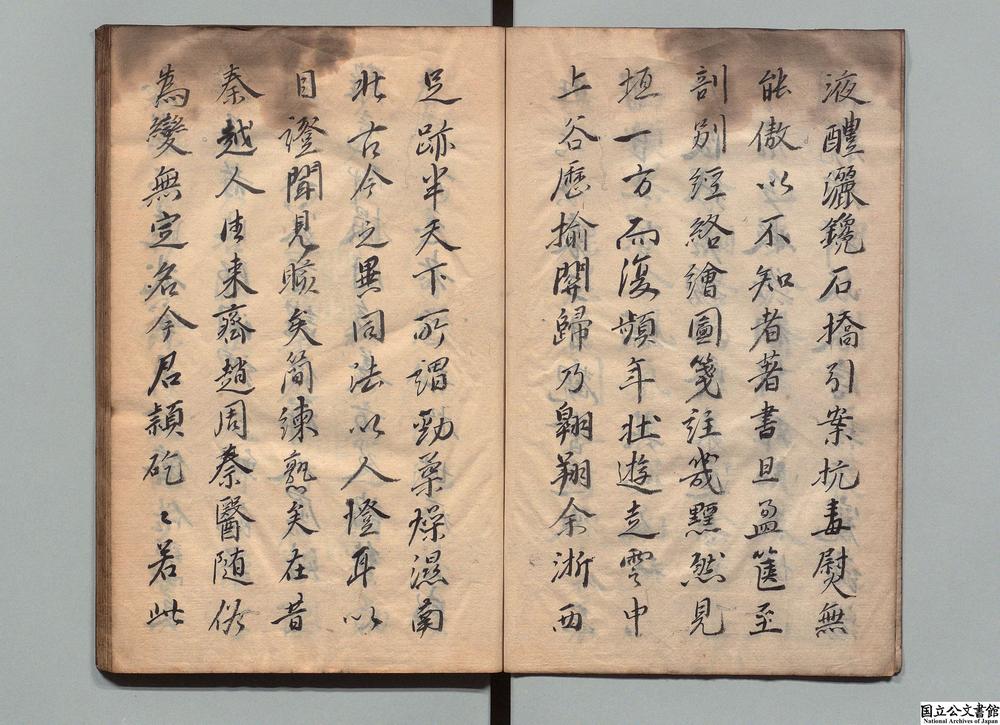 液醴灑鑱石撟引案抗毒熨無
能傲以不知者著書且盈篋至
剖別經絡繪圖箋註幾黙然見
垣一方而復頻年壯遊走雲中
上谷歷揄關歸乃翱翔余浙西
足跡半天下所謂勁藥燥濕南
北古今之異同法以人證耳以
目證聞見賅矣簡練甦矣在昔
秦越人往來齊趙周秦醫隨俗
為變無定名今君穎矻〻若此
国立公文書館
National Archives of Japan